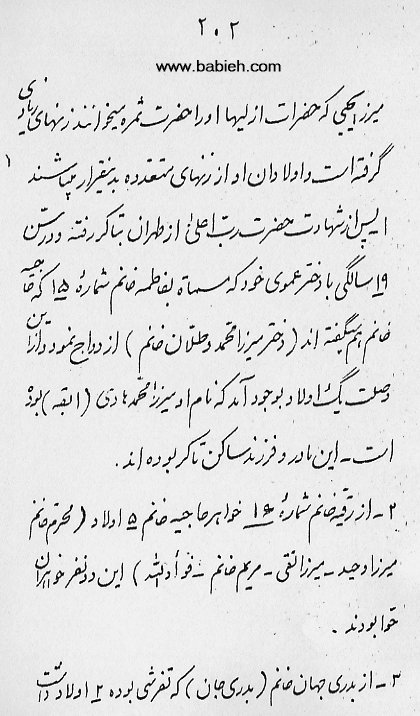 ۲۰۲
www.babieh.com
میرزا یحیی که حضرات ازلیها او را حضرت ثمره میخوانند زنهای زیادی
گرفته است و اولادان او از زنهای متعدده بدینقرار میباشند
۱ پس از شهادت حضرت رب اعلی از طهران بتاکر رفته و در سن
۱۹ سالگی با دختر عموی خود که مسماة بفاطمه خانم شمارهٔ ۱۵ که حاجیه
خانم هم میگفته اند (دختر میرزا محمد و طلان خانم) ازدواج نمود و از این
وصلت یک اولاد بوجود آمد که نام او میرزا محمد هادی (ابقه) بوده
است - این مادر و فرزند ساکن تاکر بوده اند .
۲ - از رقیه خانم شمارهٔ ۱۶ خواهر حاجیه خانم ۵ اولاد (محترم خانم
میرزا وحید - میرزا تقی - مریم خانم - فوأدالله) این دو نفر خواهران
حوا بودند .
۳ - از بدری جهان خانم (بدری جان) که تفرشی بوده ۲ اولاد داشت